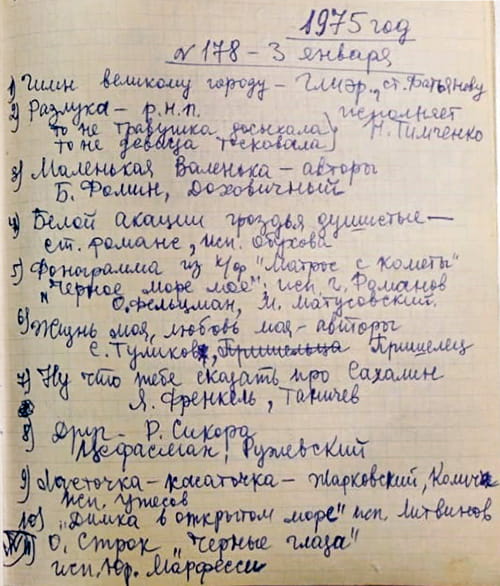 1975 год
N 178 – 3 января
1) Гимн великому городу – Глиэр., ст. Батьянову
2) Разлука – р.н.п. исполняет
то не травушка досыхала Н. Тимченко
то не девица тосковала
3) Маленькая Валенька – авторы
Б. Фомин, Доховичный
4) Белой акации гроздья душистые –
ст. романс, исп. Обухова
5) Фонограмма из к/ф "Матрос с Кометы"
"Черное море мое", исп. г. Романов
О. Фельцман, М. Матусовский.
6) Жизнь моя, любовь моя – авторы
С. Туликов, Пришелец
7) Ну что тебе сказать про Сахалин
Я. Френкель, Таничев
8) Р. Сикора
Цфасман, Ружевский
9) Ласточка-касаточка – Жарковский,
исп. Ужесов
10) "Димка в открытом море" исп. Литвинов
11) О. Строк "Черные глаза"
исп. Юр. Марфесси